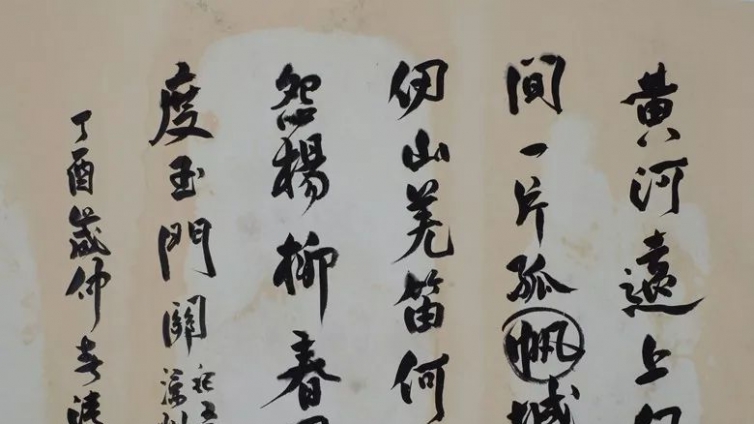 黄河遠上
間一片孤帆城
仞山羌笛何
怨楊柳春
度玉門關
丁酉歲仲春